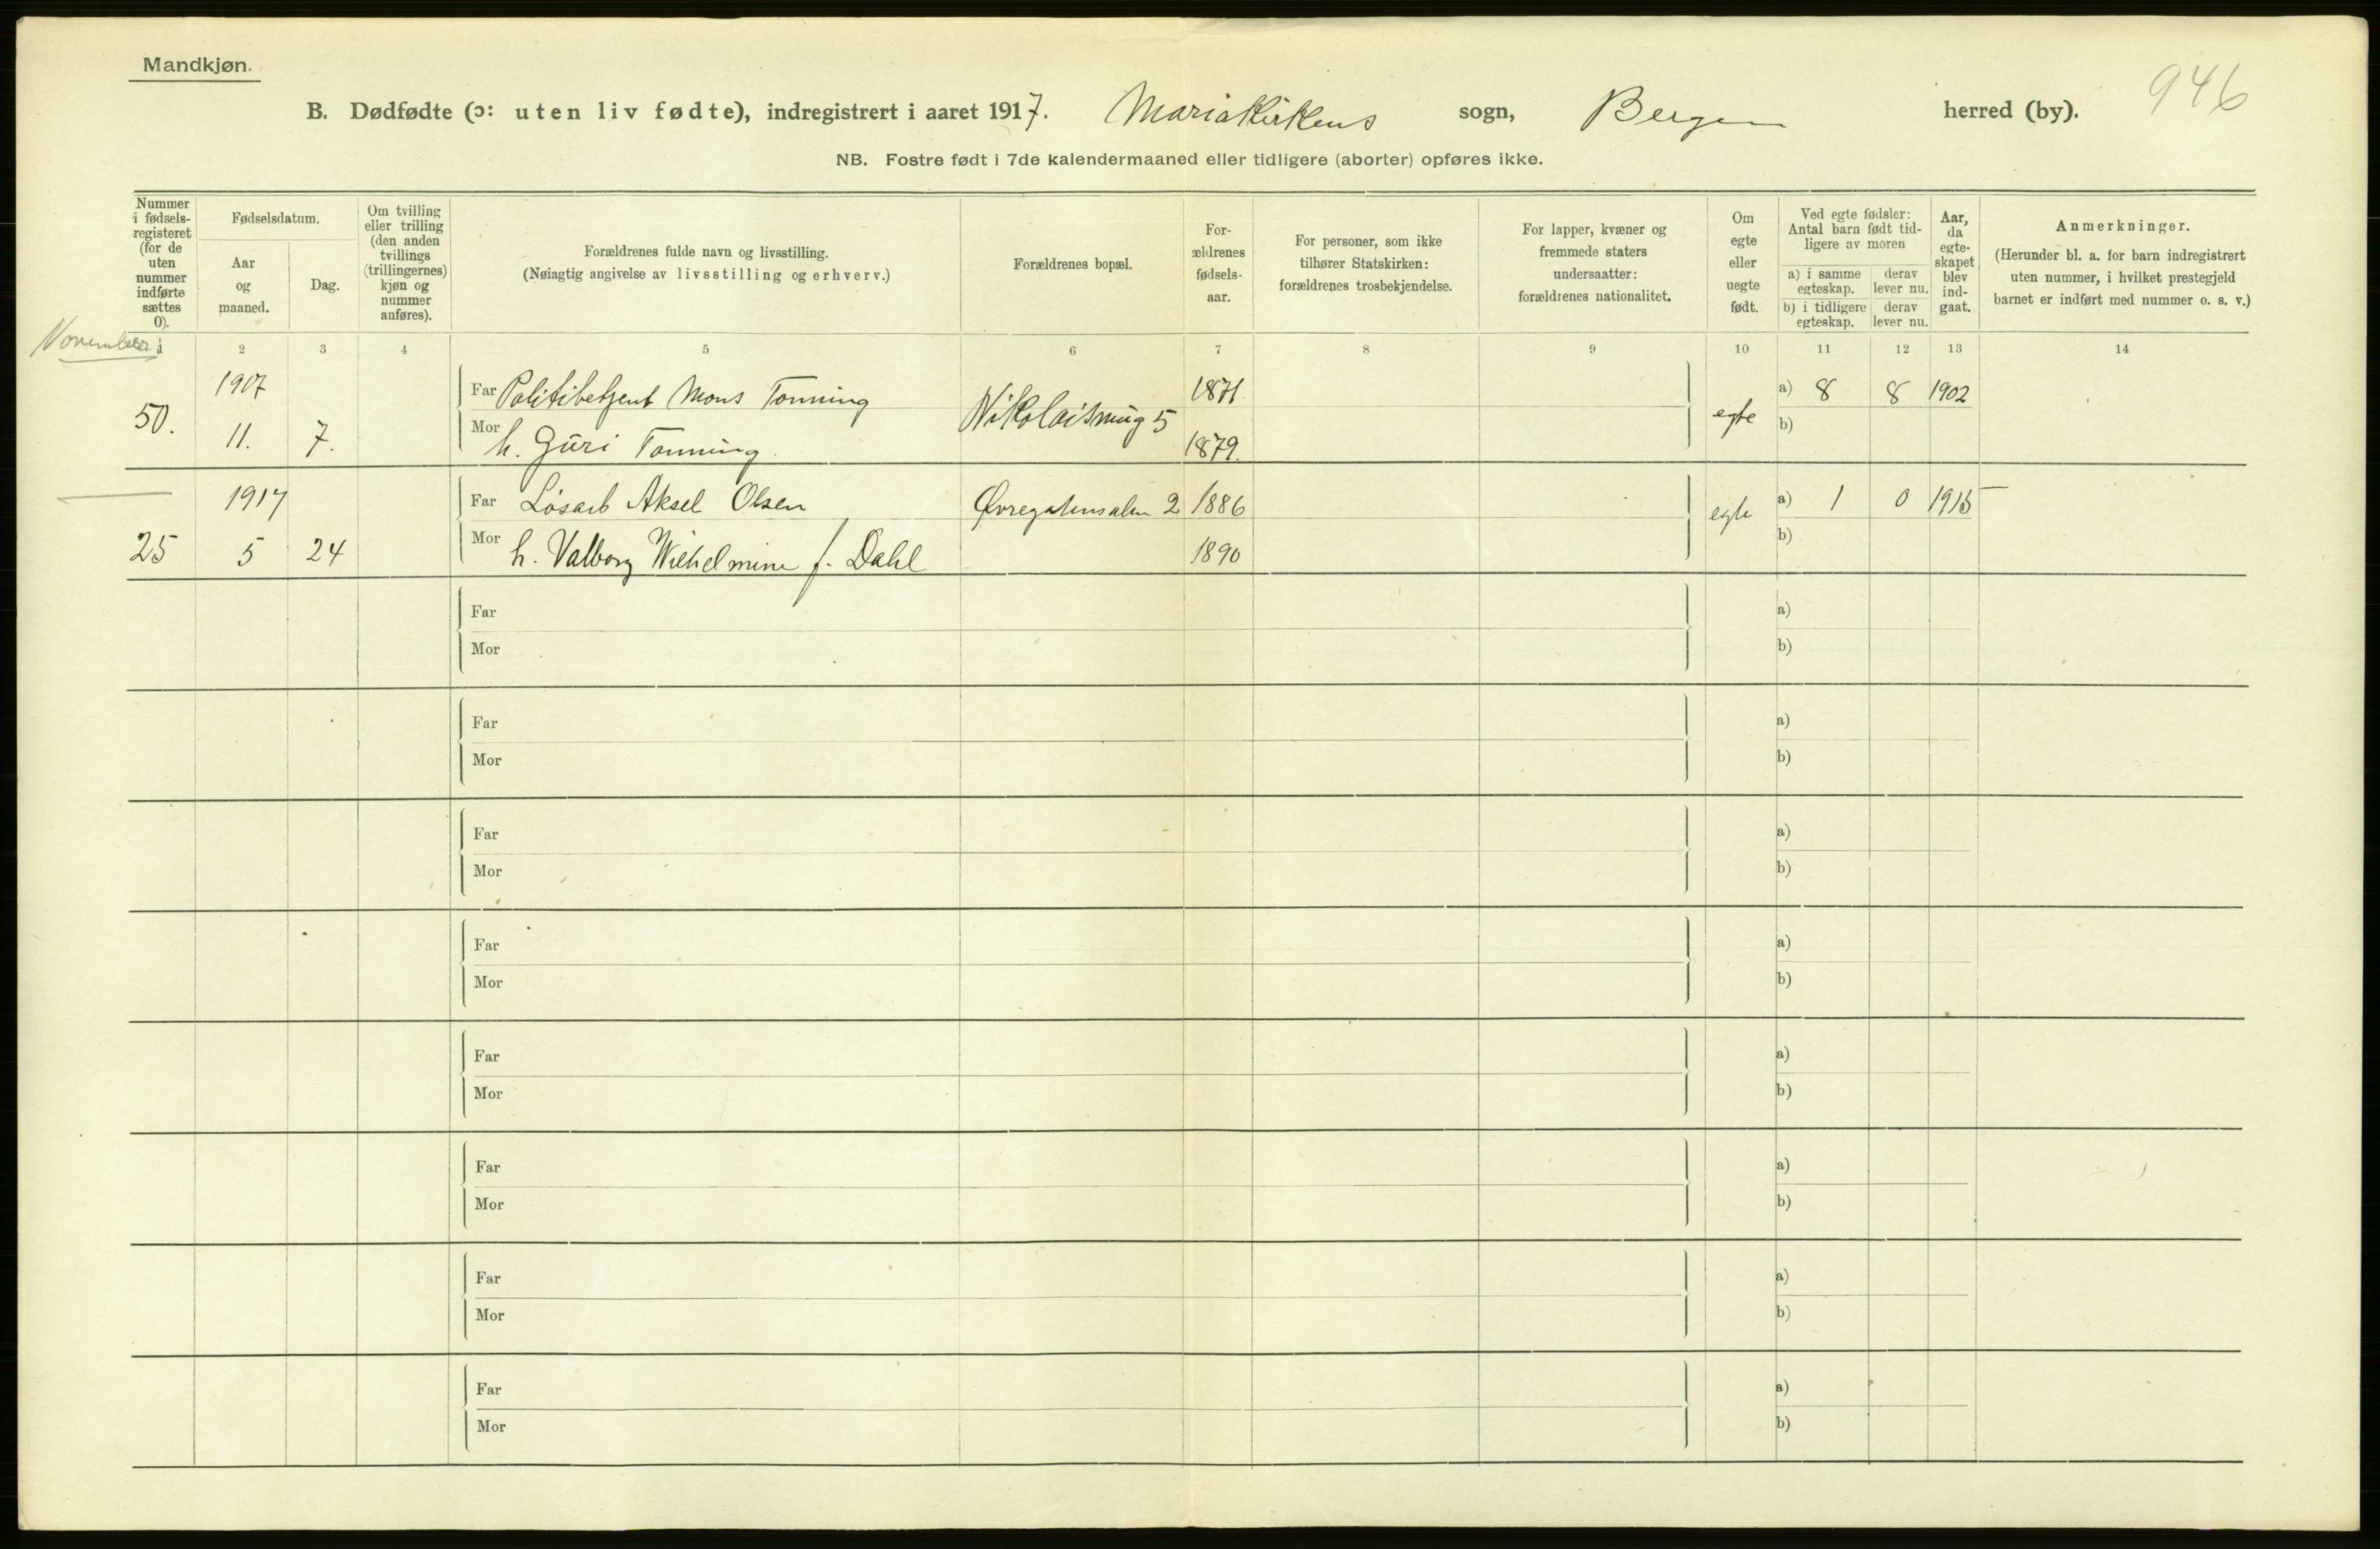 Mandkjøn.
946
B. Dødfødte (ɔ: uten liv fødte), indregistrert i aaret 1917. Mariakirkens sogn, Bergen herred (by).
NB. Fostre født i 7de kalendermaaned eller tidligere (aborter) opføres ikke.
Nummer i fødsels-registeret (for de uten nummer indførte sættes 0).
Fødselsdatum.
Aar og maaned.
Dag.
Om tvilling eller trilling (den anden tvillings (trillingernes) kjøn og nummer anføres).
Forældrenes fulde navn og livsstilling.
(Nøiagtig angivelse av livsstilling og erhverv.)
Forældrenes bopæl.
For-ældrenes fødsels-aar.
For personer, som ikke tilhører Statskirken: forældrenes trosbekjendelse.
For lapper, kvæner og fremmede staters undersaatter: forældrenes nationalitet.
Om egte eller uegte født.
Ved egte fødsler: Antal barn født tid-ligere av moren
a) i samme egteskap. derav lever nu.
b) i tidligere egteskap. derav lever nu.
Aar, da egte-skapet blev ind-gaat.
Anmerkninger.
(Herunder bl. a. for barn indregistrert uten nummer, i hvilket prestegjeld barnet er indført med nummer o. s. v.)
November
1 2 3 4 5 6 7 8 9 10 11 12 13 14
1907 Far Politibetjent Mons Tonning 1871 a) 8 8 1902
50. 11. 7. Mor h. Guri Tonning. 5 1879. egte b)
1917 Far Løsarb Aksel Olsen 2 1886 egte a) 1 0 1915
25 5 24 Mor h. Valborg Wilhelmine f. Dahl 1890 b)
Far a)
Mor b)
Far a)
Mor b)
Far a)
Mor b)
Far a)
Mor b)
Far a)
Mor b)
Far a)
Mor b)
Far a)
Mor b)
Far a)
Mor b)